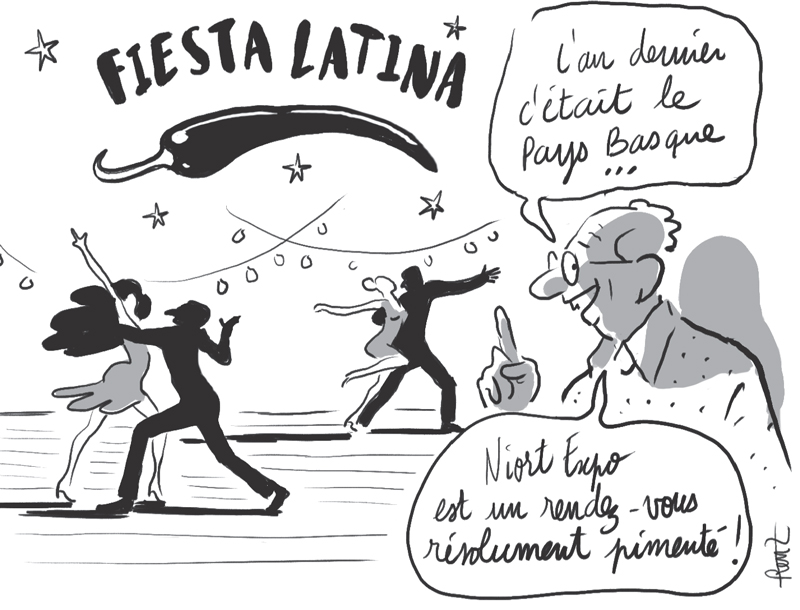 FIESTA LATINA
l'an dernier
c'était le
Pays Basque
...
Niort Expo
est un rendez-vous
résolument pimenté !